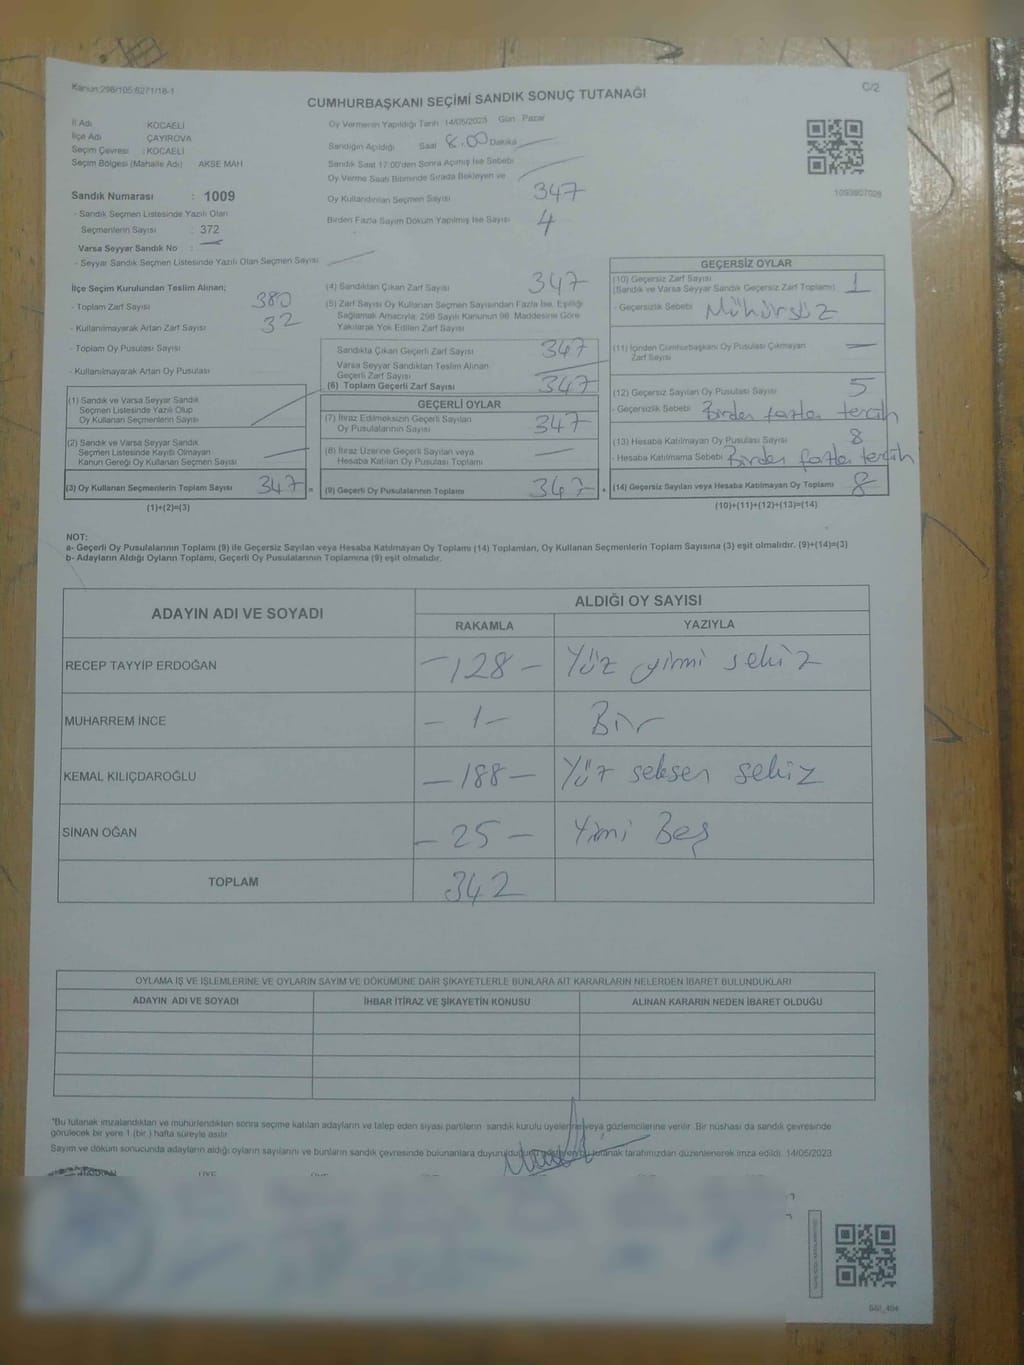 Kanun:298/105;6271/18-1
C/2
CUMHURBAŞKANI SEÇİMİ SANDIK SONUÇ TUTANAĞI
İl Adı KOCAELİ
İlçe Adı ÇAYIROVA
Seçim Çevresi : KOCAELİ
Seçim Bölgesi (Mahalle Adı) AKSE MAH
Sandık Numarası : 1009
- Sandık Seçmen Listesinde Yazılı Olan
Seçmenlerin Sayısı : 372
Varsa Seyyar Sandık No :
- Seyyar Sandık Seçmen Listesinde Yazılı Olan Seçmen Sayısı
Oy Vermenin Yapıldığı Tarih 14/05/2023 Gün Pazar
Sandığın Açıldığı Saat 8.00 Dakika
Sandık Saat 17:00'den Sonra Açılmış İse Sebebi
Oy Verme Saati Bitiminde Sırada Bekleyen ve
Oy Kullandırılan Seçmen Sayısı 347
Birden Fazla Sayım Döküm Yapılmış İse Sayısı 4
1093807028
İlçe Seçim Kurulundan Teslim Alınan;
- Toplam Zarf Sayısı 380
- Kullanılmayarak Artan Zarf Sayısı 32
- Toplam Oy Pusulası Sayısı
- Kullanılmayarak Artan Oy Pusulası
(1) Sandık ve Varsa Seyyar Sandık
Seçmen Listesinde Yazılı Olup
Oy Kullanan Seçmenlerin Sayısı
(2) Sandık ve Varsa Seyyar Sandık
Seçmen Listesinde Kayıtlı Olmayan
Kanun Gereği Oy Kullanan Seçmen Sayısı
(3) Oy Kullanan Seçmenlerin Toplam Sayısı 347 =
(1)+(2)=(3)
(4) Sandıktan Çıkan Zarf Sayısı 347
(5) Zarf Sayısı Oy Kullanan Seçmen Sayısından Fazla İse, Eşitliği
Sağlamak Amacıyla; 298 Sayılı Kanunun 98. Maddesine Göre
Yakılarak Yok Edilen Zarf Sayısı
Sandıkta Çıkan Geçerli Zarf Sayısı 347
Varsa Seyyar Sandıktan Teslim Alınan
Geçerli Zarf Sayısı
(6) Toplam Geçerli Zarf Sayısı 347
GEÇERLİ OYLAR
(7) İtiraz Edilmeksizin Geçerli Sayılan
Oy Pusulasının Sayısı 347
(8) İtiraz Üzerine Geçerli Sayılan veya
Hesaba Katılan Oy Pusulası Toplamı
(9) Geçerli Oy Pusulalarının Toplamı 347 +
GEÇERSİZ OYLAR
(10) Geçersiz Zarf Sayısı
(Sandık ve Varsa Seyyar Sandık Geçersiz Zarf Toplamı) 1
- Geçersizlik Sebebi Mühürsüz
(11) İçinden Cumhurbaşkanı Oy Pusulası Çıkmayan
Zarf Sayısı
(12) Geçersiz Sayılan Oy Pusulası Sayısı 5
- Geçersizlik Sebebi Birden fazla tercih
(13) Hesaba Katılmayan Oy Pusulası Sayısı 8
- Hesaba Katılmama Sebebi Birden fazla tercih
(14) Geçersiz Sayılan veya Hesaba Katılmayan Oy Toplamı 8
(10)+(11)+(12)+(13)=(14)
NOT:
a- Geçerli Oy Pusulalarının Toplamı (9) ile Geçersiz Sayılan veya Hesaba Katılmayan Oy Toplamı (14) Toplamları, Oy Kullanan Seçmenlerin Toplam Sayısına (3) eşit olmalıdır. (9)+(14)=(3)
b- Adayların Aldığı Oyların Toplamı, Geçerli Oy Pusulalarının Toplamına (9) eşit olmalıdır.
ADAYIN ADI VE SOYADI
ALDIĞI OY SAYISI
RAKAMLA YAZIYLA
RECEP TAYYİP ERDOĞAN -128- Yüz yirmi sekiz
MUHARREM İNCE -1- Bir
KEMAL KILIÇDAROĞLU -188- Yüz seksen sekiz
SİNAN OĞAN -25- Yimi Beş
TOPLAM 342
OYLAMA İŞ VE İŞLEMLERİNE VE OYLARIN SAYIM VE DÖKÜMÜNE DAİR ŞİKAYETLERLE BUNLARA AİT KARARLARIN NELERDEN İBARET BULUNDUKLARI
ADAYIN ADI VE SOYADI İHBAR İTİRAZ VE ŞİKAYETİN KONUSU ALINAN KARARIN NEDEN İBARET OLDUĞU
*Bu tutanak imzalandıktan ve mühürlendikten sonra seçime katılan adayların ve talep eden siyasi partilerin sandık kurulu üyelerine veya gözlemcilerine verilir. Bir nüshası da sandık çevresinde
görülecek bir yere 1 (bir ) hafta süreyle asılır.
Sayım ve döküm sonucunda adayların aldığı oyların sayılarını ve bunların sandık çevresinde bulunanlara duyurulduğunu gösteren bu tutanak tarafımızdan düzenlenerek imza edildi. 14/05/2023